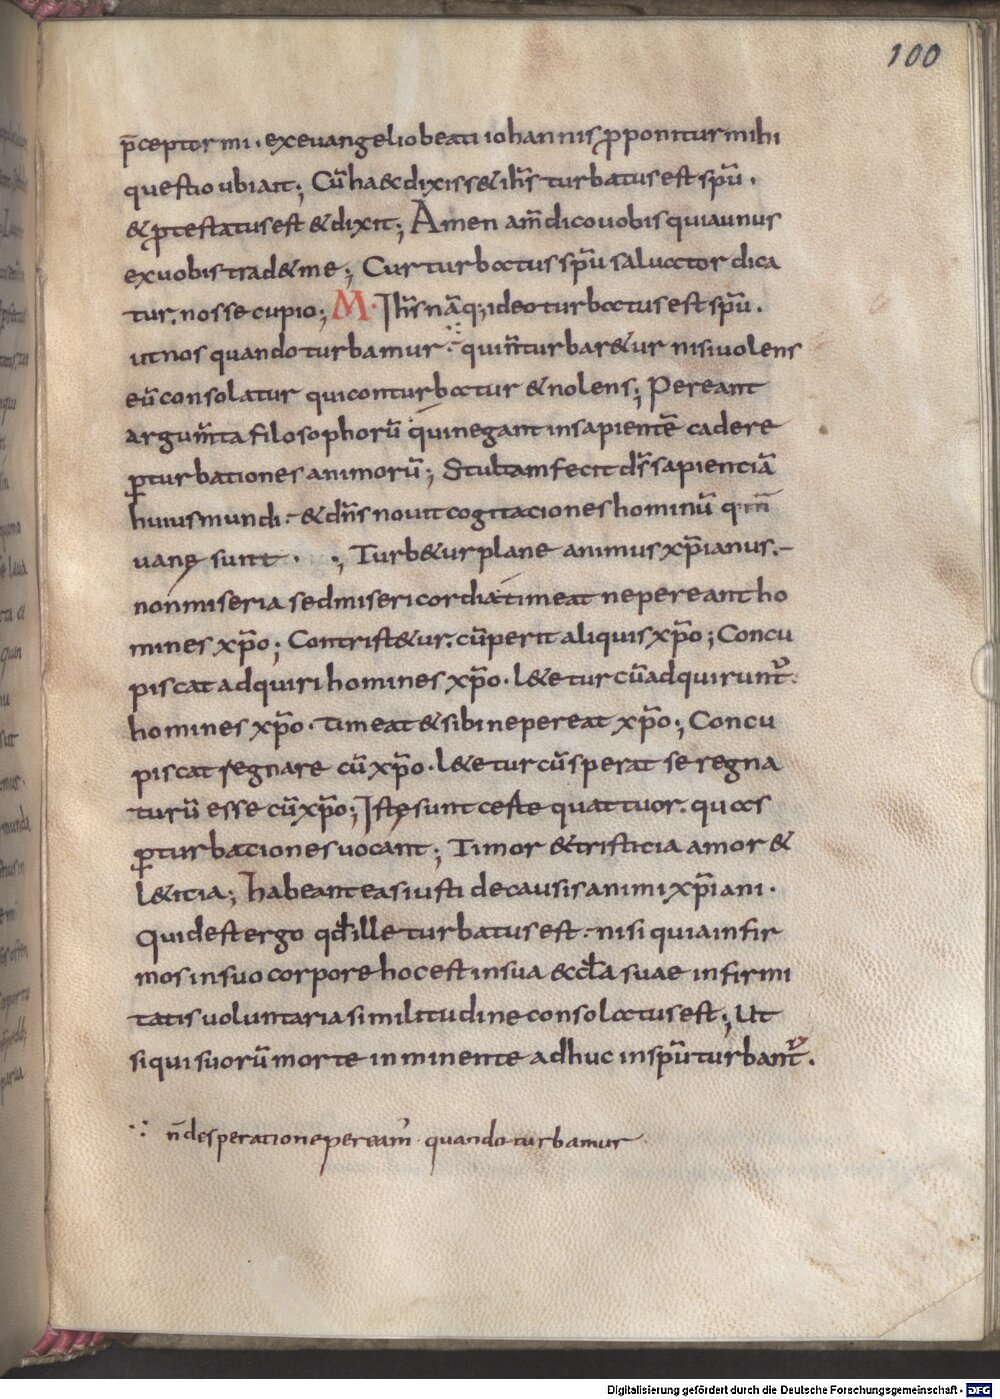 100
p̄ceptor mi. ex euangelio beati iohannis p̄ponitur mihi
questio ubi ait; Cū haec dixisset ih̄s turbatus est spū.
& p̄testatus est & dixit; Amen am̄ dico uobis quia unus
ex uobis tradet me; Cur turbatus spū saluator dica
tur. nosse cupio; M. Ih̄s nāq; ideo turbatus est spū.
ut nos quando turbamur ∵ qui n̄ turbaretur nisi uolens
eū consolatur qui conturbatur & nolens; Pereant
argum̄ta filosophorū qui negant in sapientē cadere
p̱turbationes animorū; Stultam fecit ds̄ sapienciā
huius mundi. & dn̄s nouit cogitaciones hominū qm̄
uanę sunt. ; Turbetur plane animus xp̄ianus.
non miseria sed misericordia timeat ne pereant ho
mines xp̄o; Contristetur. cū perit aliquis xp̄o; Concu
piscat adquiri homines xp̄o. letetur cū adquirunt᷑.
homines xp̄o. timeat & sibi ne pereat xp̄o; Concu
piscat regnare cū xp̄o. letetur cū sperat se regna
turū esse cū xp̄o; Istę sunt certe quattuor. quas
p̱turbaciones uocant; Timor & tristicia amor &
l&icia; habeant eas iusti de causis animi xp̄iani.
Quid est ergo qd̄ ille turbatus est. nisi quia infir
mos in suo corpore hoc est in sua eccl̄a suae infirmi
tatis uoluntaria similitudine consolatus est; Ut
si qui suorū morte inminente adhuc in spū turbant᷑.
∵ n̄ desperatione peream᷒ quando turbamur
Digitalisierung gefördert durch die Deutsche Forschungsgemeinschaft - DFG